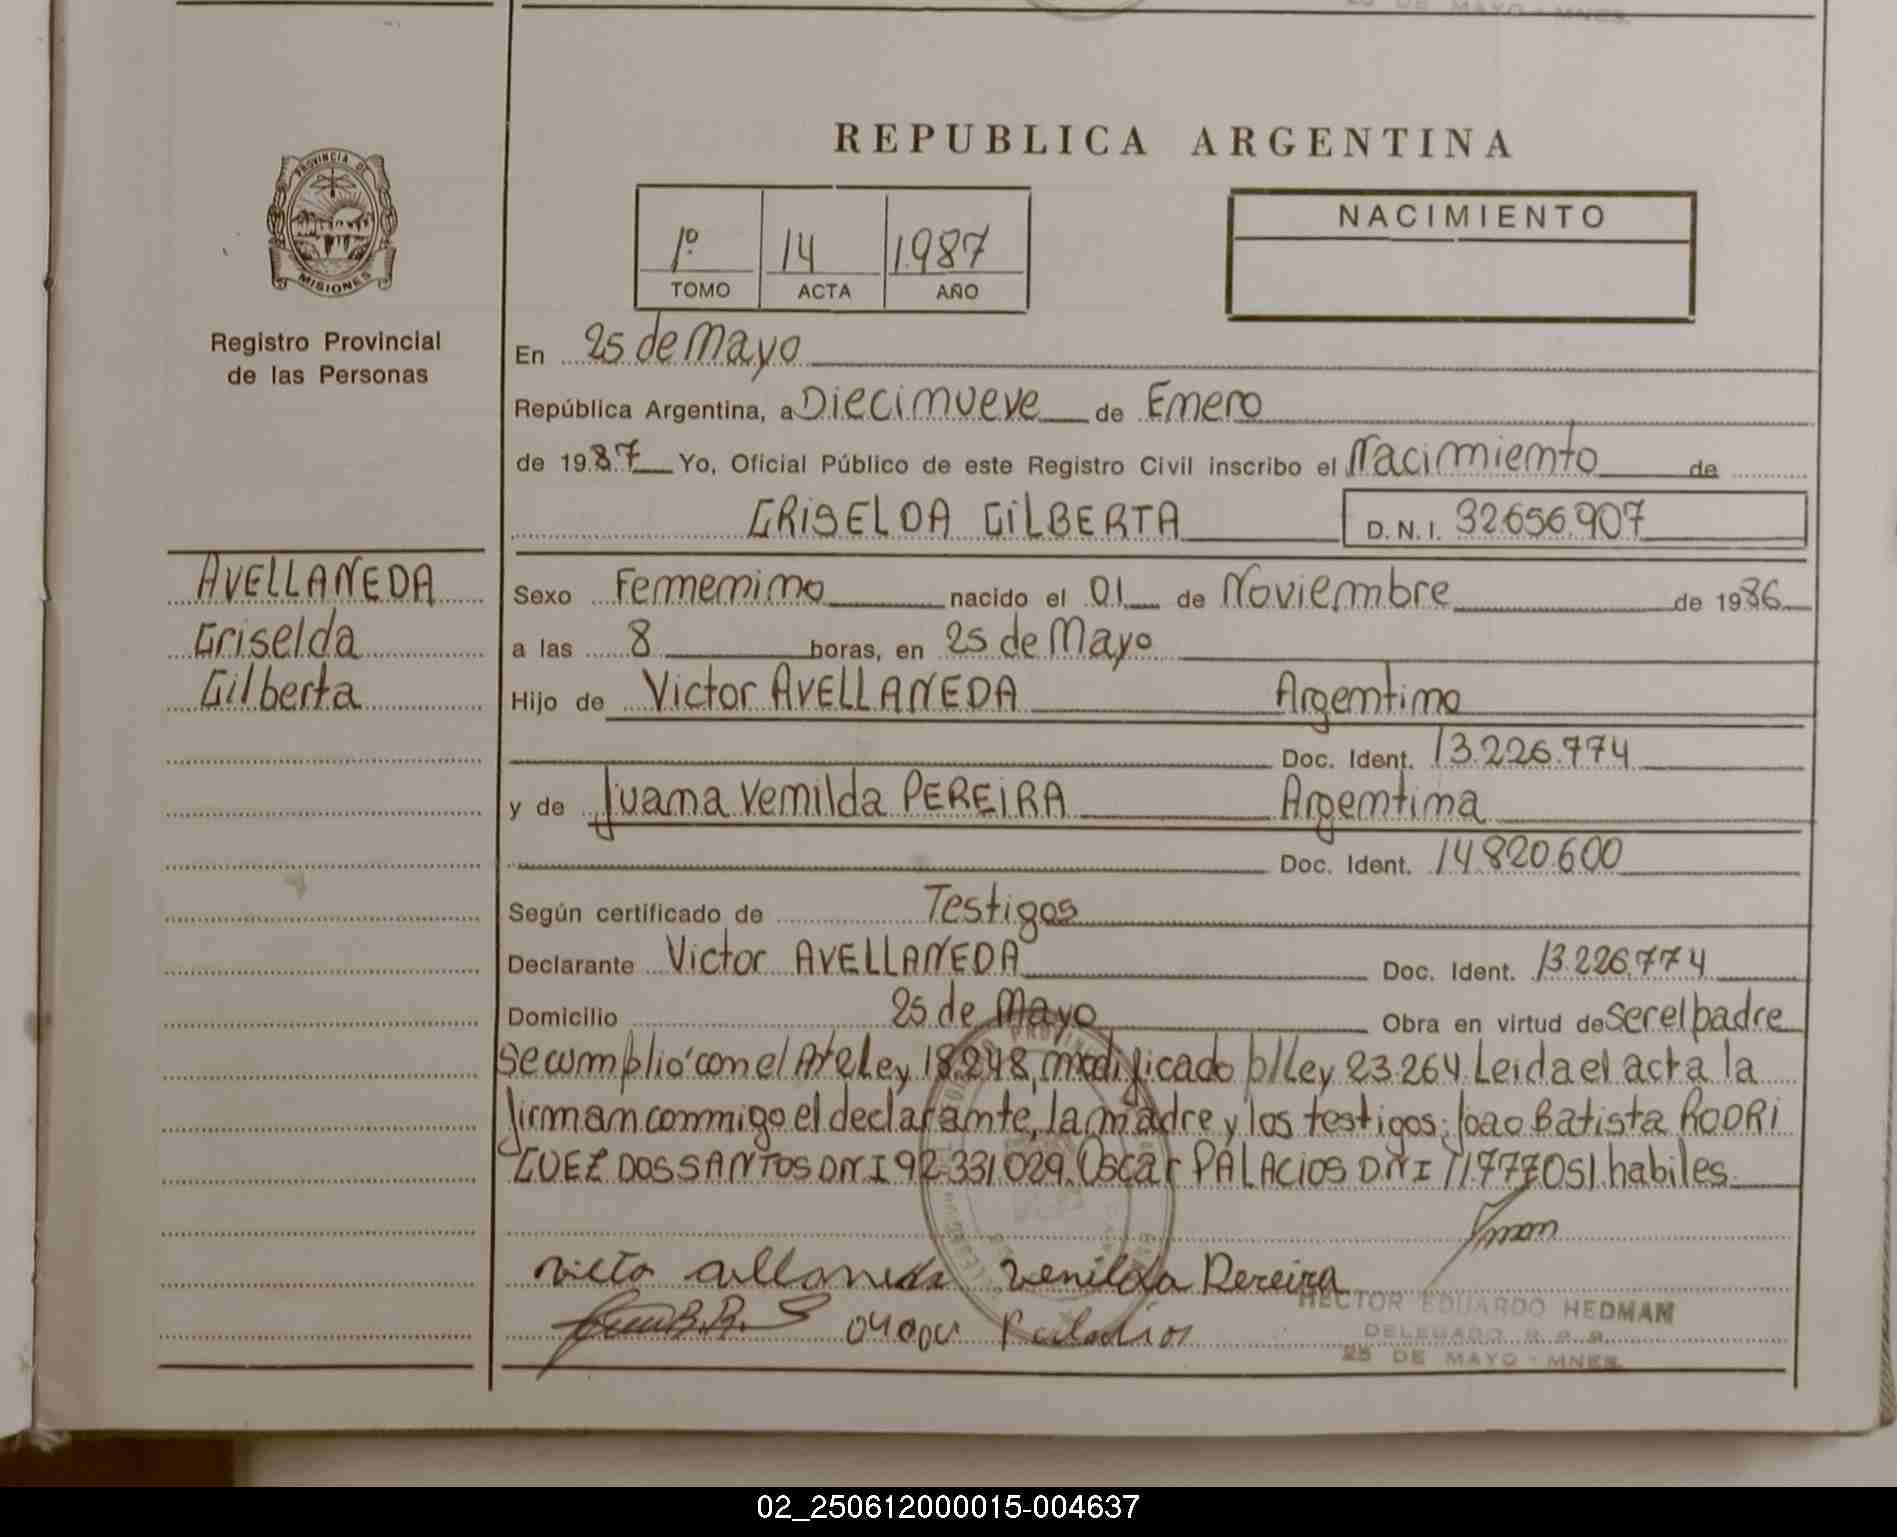 REPUBLICA ARGENTINA
PROVINCIA DE
MISIONES
1º 14 1987
TOMO ACTA AÑO
NACIMIENTO
Registro Provincial
de las Personas
En 25 de Mayo
República Argentina, a Diecinueve de Enero
de 1987 Yo, Oficial Público de este Registro Civil inscribo el Nacimiento de
GRISELDA GILBERTA D.N.I. 32.656.907
AVELLANEDA
Griselda
Gilberta
Sexo Femenino nacido el 01 de Noviembre de 1986
a las 8 horas, en 25 de Mayo
Hijo de Victor AVELLANEDA Argentino
Doc. Ident. 13.226.774
y de Juana Venilda PEREIRA Argentina
Doc. Ident. 14.820.600
Según certificado de Testigos
Declarante Victor AVELLANEDA Doc. Ident. 13.226.774
Domicilio 25 de Mayo Obra en virtud de ser el padre
Se cumplió con el Ley 18.248, modificado p/Ley 23.264. Leida el acta la
firman conmigo el declarante, la madre y los testigos: Joao Batista RODRI
GUEZ DOS SANTOS DNI 92.331.029. Oscar PALACIOS DNI 11.777.051. habiles.
Venilda Pereira
Palacios
HECTOR EDUARDO HEDMAN
DELEGADO R.P.P.
25 DE MAYO - MNES.
02_250612000015-004637